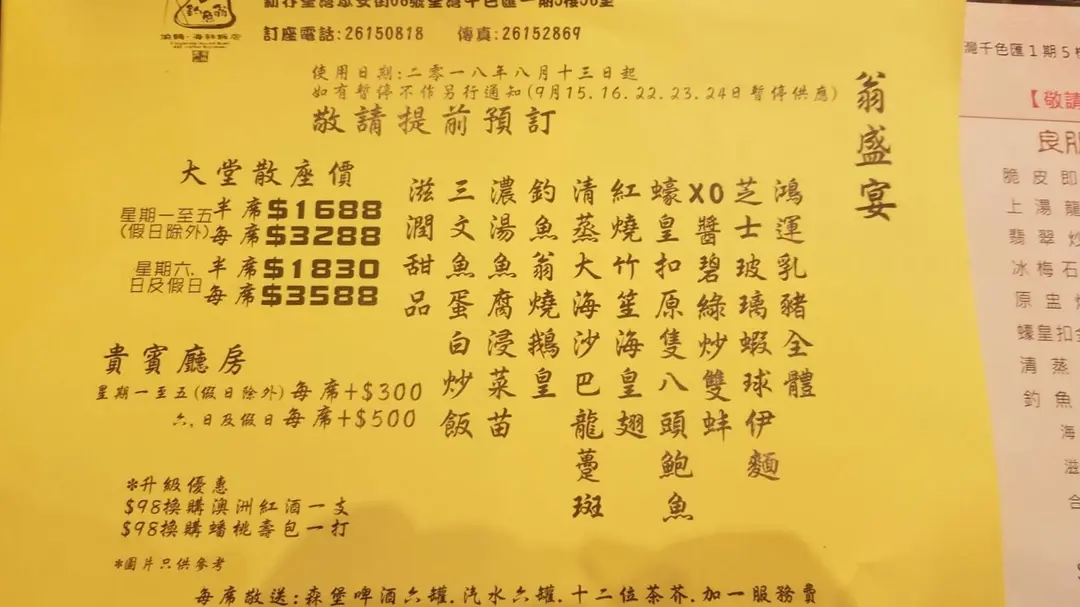 訂座電話:26150818 傳真:26152869
使用日期:二零一八年八月十三日起
如有暫停不作另行通知(9月15.16.22.23.24日暫停供應)
敬請提前預訂
翁盛宴
鴻運乳豬全體
芝士玻璃蝦球伊麵
XO醬碧綠炒雙蚌
蠔皇扣原隻八頭鮑魚
紅燒竹笙海皇翅
清蒸大海沙巴龍躉斑
釣魚翁燒鵝皇
濃湯魚腐浸菜苗
三文魚蛋白炒飯
滋潤甜品
大堂散座價
星期一至五
(假日除外)
半席$1688
每席$3288
星期六.
日及假日
半席$1830
每席$3588
貴賓廳房
星期一至五(假日除外)每席+$300
六.日及假日每席+$500
*升級優惠
$98換購澳洲紅酒一支
$98換購蟠桃壽包一打
*圖片只供參考
每席敬送:森堡啤酒六罐.汽水六罐.十二位茶芥.加一服務費
灣千色匯1期5樓
【敬請
良朋
脆皮即
上湯龍
翡翠炒
冰梅石
原盅
蠔皇扣
清蒸
釣魚
海
滋
合